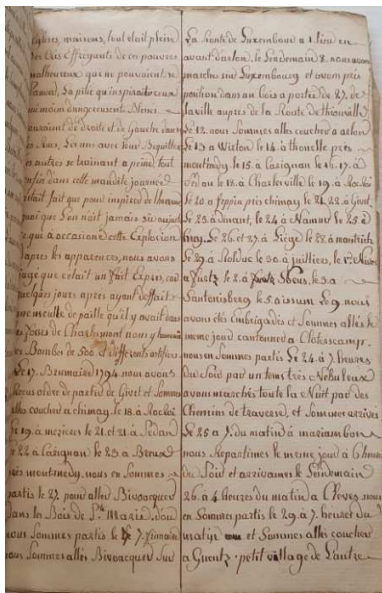 Eglises, maisons, tout etait plein
des Cris Effreyants de ces pauvres
malheureux qui ne pouvaient se
la pitié qu'inspirait ceux
au moins dangereusement Blessés
de droite et de Gauche dans
Les uns avec leur Béquilles
les autres se trainant a peine, tout
enfin dans cette maudite journée
etait fait que pour inspirer de l'horreur
quoique l'on n'ait jamais sçu au juste
ce qui a occasioné cette Explosion
apres les apparences, nous avons
jugé que c'etait un fait Exprès, car
quelques jours apres ayant deffait
une meule de paille qu'il y avait dans
les fossés de Charlemont nous y trouvames
des Bombes de 500 et differents artifices
Le 17 Brumaire 1794 nous avons
Recus ordre de partir de Givet et Sommes
allés coucher a chimay, le 18 a Rocroi
le 19 a mezieres le 21 et 21 a Sedan
le 22 a Carignan le 23 a
près montmedy, nous en Sommes
partis le 27 pour aller Bivoacquer
dans les Bois de Ste Marie, d'où
nous Sommes partis le 7 frimaire
nous Sommes allés Bivoacquer Sur
La Route de Luxembourg a 1 lieue en
avant d'arlon, le Lendemain 8 nous avons
marchés sur Luxembourg et avons pris
position dans un bois a portée de 27 de
la ville aupres de la Route de thionville
Le 12 nous Sommes allés coucher a arlon
Le 13 a Wirton le 14 a thonelle près
montmedy, le 15 a Carignan le 16 17 a
Sedan le 18 a Charleville le 19 a Rocroi
Le 20 a près chimay le 21 22 a Givet
Le 23 a dinant, le 24 a Namur le 25 a
huy, Le 26 et 27 a Liège le 28 a
Le 29 a Rolduc le 30 a juilliers, le 1er Nivose
a le 2 a Neus, le 3 a
le 5 a issum Le 9 nous
avons étés Embrigadés et Sommes allés le
meme jour cantonner a
nous en Sommes partis Le 24 a 7 heures
du Soir par un tems très Nébuleux
avons marchés toute la Nuit par des
Chemins de traverse, et Sommes arrivés
Le 25 a 7 du matin a mariambon
nous Repartimes le meme jour a 6 heures
du Soir et arrivames le Lendemain
26 a 4 heures du matin a Cleves nous
en Sommes partis le 29 a 7 heures du
matin et Sommes allés coucher
a petit village de L'autre